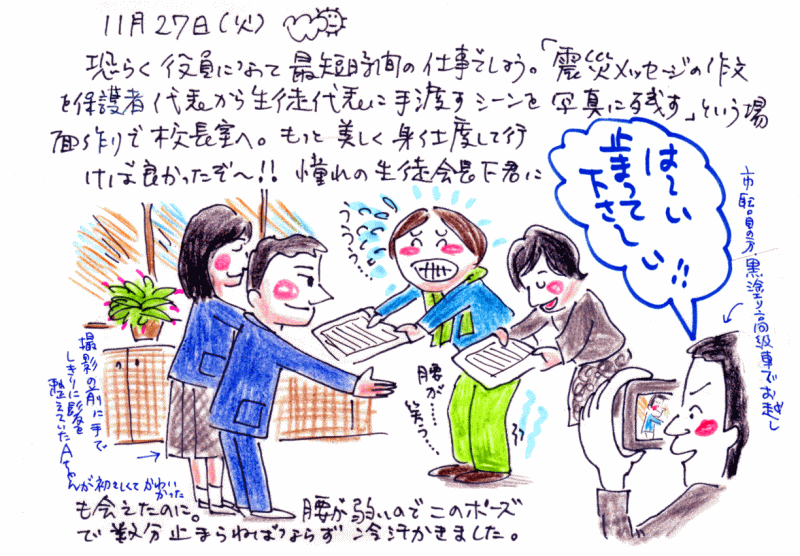 11月27日(火)
恐らく役員になって最短時間の仕事でしょう。「震災メッセージの作文
を保護者代表から生徒代表に手渡すシーンを写真に残す」という場
面作りで校長室へ。もっと美しく身仕度して行
けば良かったぞ〜!!憧れの生徒会長下君に
は〜い
止まって
下さ〜い!!
市職員の方。黒塗り高級車でお越し
ううう〜っ
腰が……
笑う…
撮影の前に手で
しきりに髪を
整えていたAちゃ
んが初々しくてかわい
かった
も会えたのに。腰が弱いのでこのポーズ
で数分止まらねばならず冷汗かきました。